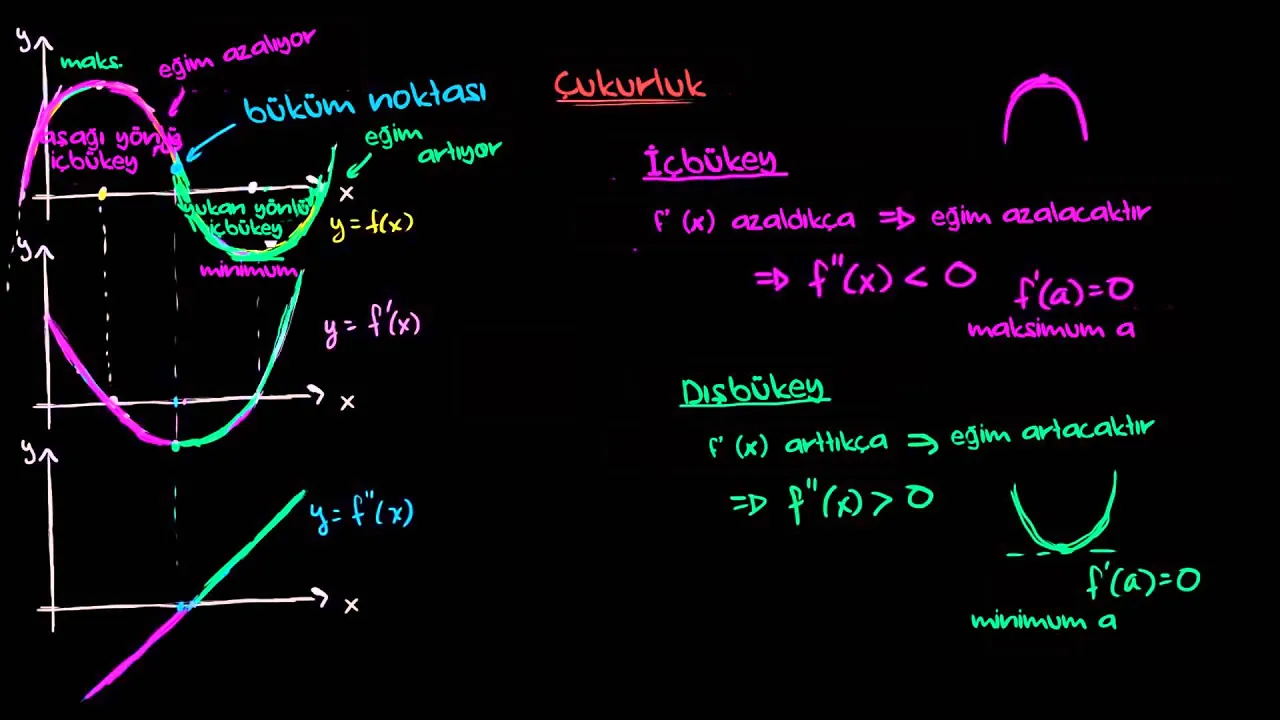 y
maks.
eğim azalıyor
büküm noktası
aşağı yönlü
içbükey
eğim
artıyor
x
yukarı yönlü
içbükey
y = f(x)
minimum
y
y = f'(x)
x
y
y = f''(x)
x
Çukurluk
İçbükey
f' (x) azaldıkça ⇒ eğim azalacaktır
⇒ f''(x) < 0
f'(a) = 0
maksimum a
Dışbükey
f' (x) arttıkça ⇒ eğim artacaktır
⇒ f''(x) > 0
f'(a) = 0
minimum a